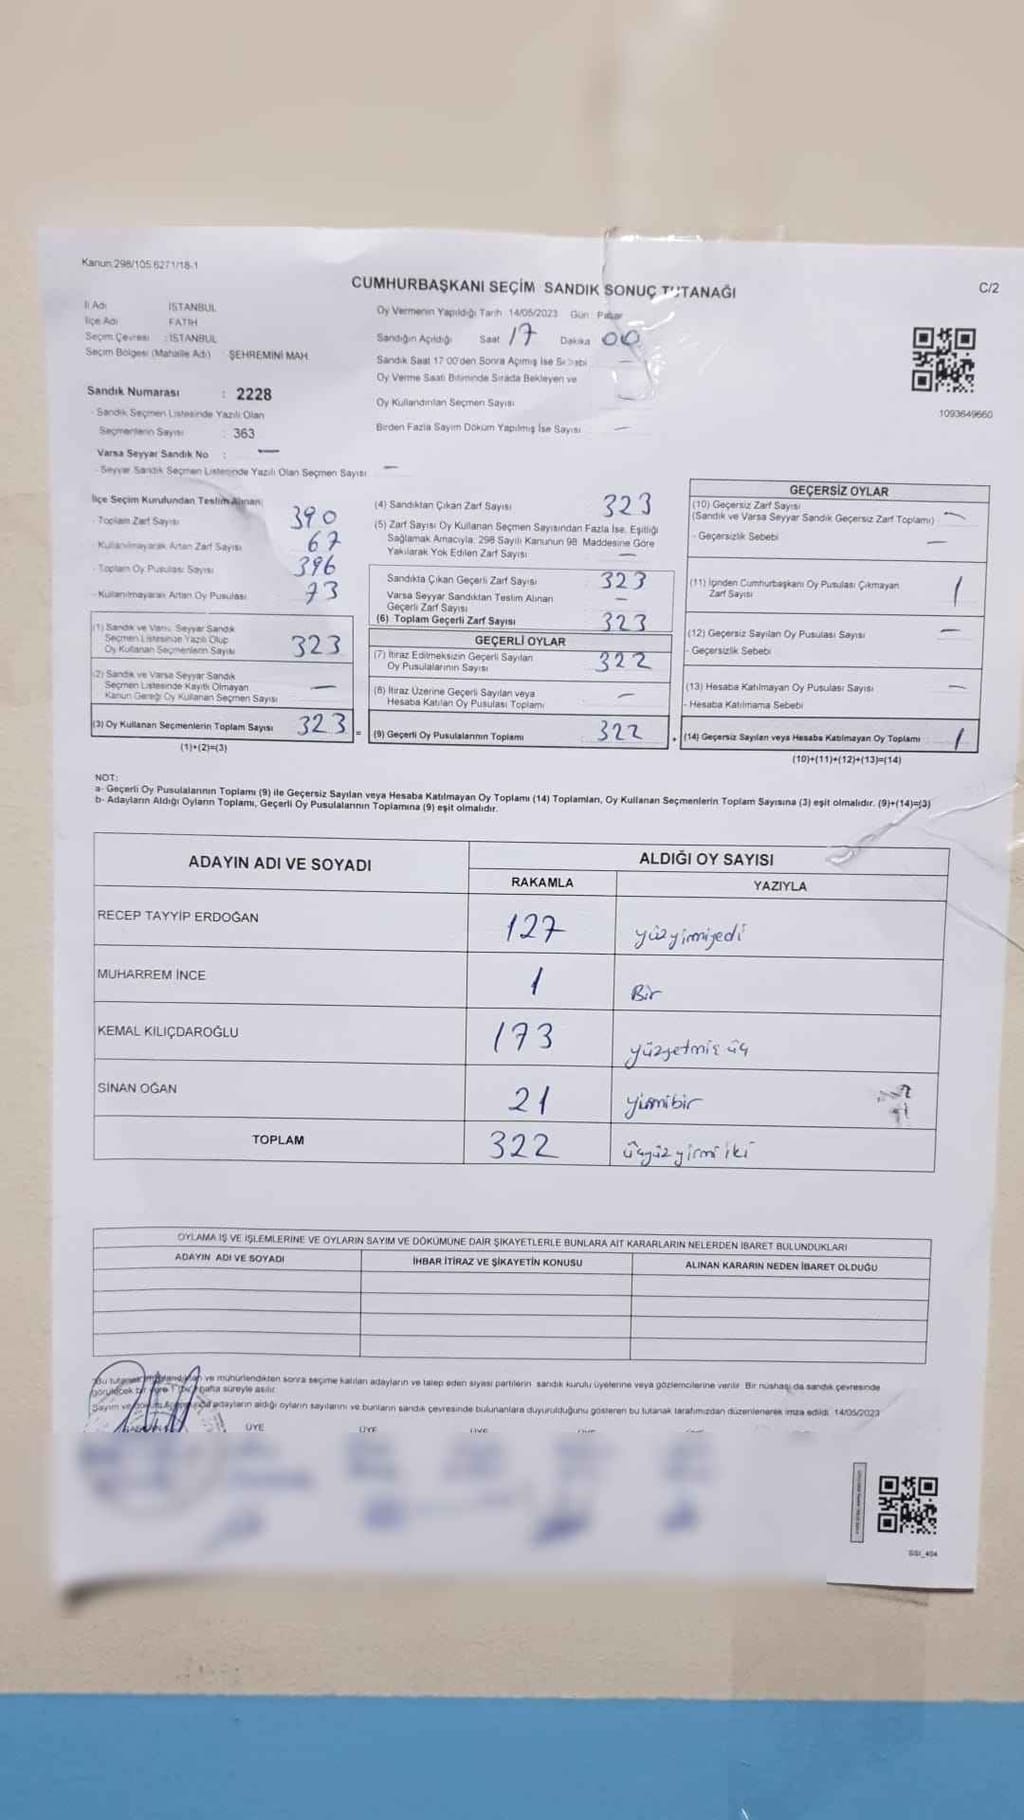 Kanun:298/105 6271/18-1
CUMHURBAŞKANI SEÇİM SANDIK SONUÇ TUTANAĞI
C/2
İl Adı İSTANBUL
İlçe Adı FATİH
Seçim Çevresi : İSTANBUL
Seçim Bölgesi (Mahalle Adı) ŞEHREMİNİ MAH.
Oy Vermenin Yapıldığı Tarih 14/05/2023 Gün: Pazar
Sandığın Açıldığı Saat 17 Dakika 00
Sandık Saat 17:00'den Sonra Açımış İse Sebebi —
Oy Verme Saati Bitiminde Sırada Bekleyen ve
Oy Kullandırılan Seçmen Sayısı —
Birden Fazla Sayım Döküm Yapılmış İse Sayısı —
1093649660
Sandık Numarası : 2228
- Sandık Seçmen Listesinde Yazılı Olan
Seçmenlerin Sayısı : 363
Varsa Seyyar Sandık No : —
- Seyyar Sandık Seçmen Listesinde Yazılı Olan Seçmen Sayısı —
İlçe Seçim Kurulundan Teslim Alınan;
- Toplam Zarf Sayısı 390
- Kullanılmayarak Artan Zarf Sayısı 67
- Toplam Oy Pusulası Sayısı 396
- Kullanılmayarak Artan Oy Pusulası 73
(1) Sandık ve Varsa Seyyar Sandık
Seçmen Listesinde Yazılı Olup
Oy Kullanan Seçmenlerin Sayısı 323
(2) Sandık ve Varsa Seyyar Sandık
Seçmen Listesinde Kayıtlı Olmayan
Kanun Gereği Oy Kullanan Seçmen Sayısı —
(3) Oy Kullanan Seçmenlerin Toplam Sayısı 323 =
(1)+(2)=(3)
(4) Sandıktan Çıkan Zarf Sayısı 323
(5) Zarf Sayısı Oy Kullanan Seçmen Sayısından Fazla İse, Eşitliği
Sağlamak Amacıyla, 298 Sayılı Kanunun 98. Maddesine Göre
Yakılarak Yok Edilen Zarf Sayısı —
Sandıkta Çıkan Geçerli Zarf Sayısı 323
Varsa Seyyar Sandıktan Teslim Alınan
Geçerli Zarf Sayısı —
(6) Toplam Geçerli Zarf Sayısı 323
GEÇERLİ OYLAR
(7) İtiraz Edilmeksizin Geçerli Sayılan
Oy Pusulalarının Sayısı 322
(8) İtiraz Üzerine Geçerli Sayılan veya
Hesaba Katılan Oy Pusulası Toplamı —
(9) Geçerli Oy Pusulalarının Toplamı 322 +
GEÇERSİZ OYLAR
(10) Geçersiz Zarf Sayısı
(Sandık ve Varsa Seyyar Sandık Geçersiz Zarf Toplamı) —
- Geçersizlik Sebebi —
(11) İçinden Cumhurbaşkanı Oy Pusulası Çıkmayan
Zarf Sayısı 1
(12) Geçersiz Sayılan Oy Pusulası Sayısı —
- Geçersizlik Sebebi
(13) Hesaba Katılmayan Oy Pusulası Sayısı —
- Hesaba Katılmama Sebebi
(14) Geçersiz Sayılan veya Hesaba Katılmayan Oy Toplamı 1
(10)+(11)+(12)+(13)=(14)
NOT:
a- Geçerli Oy Pusulalarının Toplamı (9) ile Geçersiz Sayılan veya Hesaba Katılmayan Oy Toplamı (14) Toplamları, Oy Kullanan Seçmenlerin Toplam Sayısına (3) eşit olmalıdır. (9)+(14)=(3)
b- Adayların Aldığı Oyların Toplamı, Geçerli Oy Pusulalarının Toplamına (9) eşit olmalıdır.
ADAYIN ADI VE SOYADI
ALDIĞI OY SAYISI
RAKAMLA YAZIYLA
RECEP TAYYİP ERDOĞAN 127 yüzyirmiyedi
MUHARREM İNCE 1 Bir
KEMAL KILIÇDAROĞLU 173 yüzyetmiş üç
SİNAN OĞAN 21 yirmibir
TOPLAM 322 üçyüzyirmi iki
OYLAMA İŞ VE İŞLEMLERİNE VE OYLARIN SAYIM VE DÖKÜMÜNE DAİR ŞİKAYETLERLE BUNLARA AİT KARARLARIN NELERDEN İBARET BULUNDUKLARI
ADAYIN ADI VE SOYADI İHBAR İTİRAZ VE ŞİKAYETİN KONUSU ALINAN KARARIN NEDEN İBARET OLDUĞU
Bu ve mühürlendikten sonra seçime katılan adayların ve talep eden siyasi partilerin sandık kurulu üyelerine veya gözlemcilerine verilir. Bir nüshası da sandık çevresinde
görülecek bir hafta süreyle asılır.
Sayım ve adayların aldığı oyların sayılarını ve bunların sandık çevresinde bulunanlara duyurulduğunu gösteren bu tutanak tarafımızdan düzenlenerek imza edildi. 14/05/2023
ÜYE ÜYE ÜYE